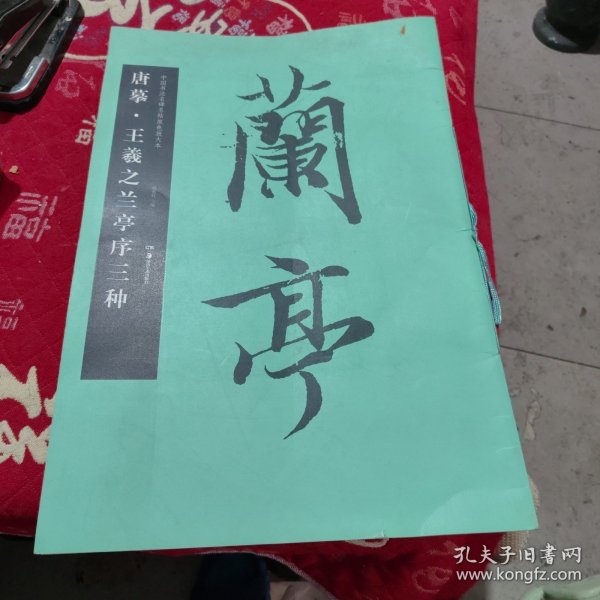 中国书法名碑名帖原色放大本
唐摹·王羲之兰亭序三种
蘭亭
福
福
孔夫子旧书网
www.kongfz.com